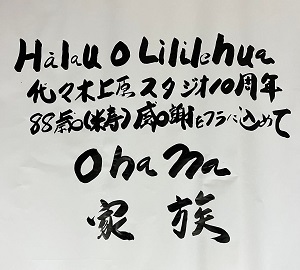 Hālau O Lililehua
代々木上原スタジオ10周年
88歳(米寿)感謝をフラに込めて
Ohana
家族